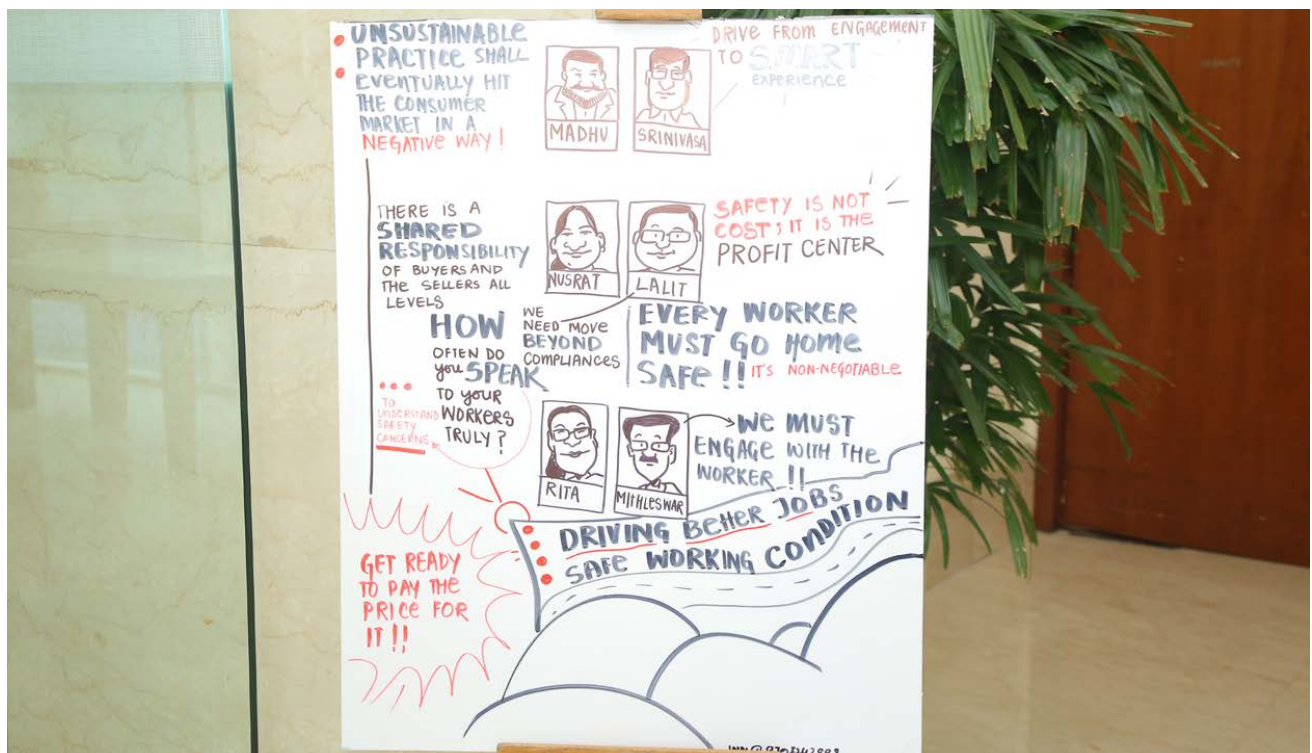 UNSUSTAINABLE
PRACTICE SHALL
EVENTUALLY HIT
THE CONSUMER
MARKET IN A
NEGATIVE WAY!
MADHU
SRINIVASA
DRIVE FROM ENGAGEMENT
TO SMART
EXPERIENCE
THERE IS A
SHARED
RESPONSIBILITY
OF BUYERS AND
THE SELLERS ALL
LEVELS
NUSRAT
LALIT
SAFETY IS NOT
COST; IT IS THE
PROFIT CENTER
WE
NEED MOVE
BEYOND
COMPLIANCES
EVERY WORKER
MUST GO HOME
SAFE!! IT'S NON-NEGOTIABLE
HOW
OFTEN DO
you SPEAK
TO YOUR
WORKERS
TRULY?
TO
UNDERSTAND
SAFETY
CONCERNS
RITA
MITHLESWAR
WE MUST
ENGAGE WITH THE
WORKER!!
DRIVING BETTER JOBS
SAFE WORKING CONDITION
GET READY
TO PAY THE
PRICE FOR
IT!!